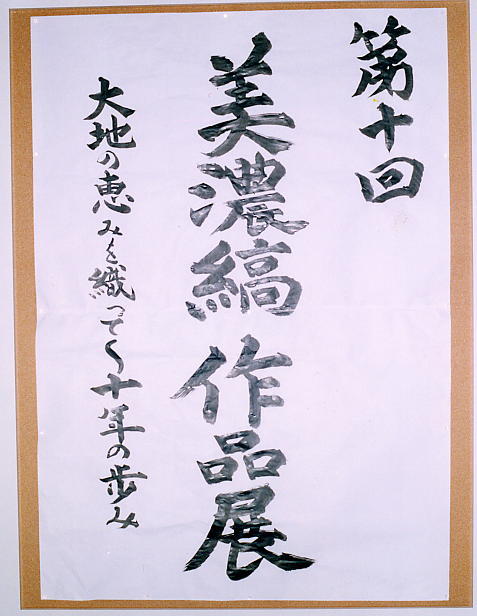 第十回
美濃縞作品展
大地の恵みを織って〱十年の歩み